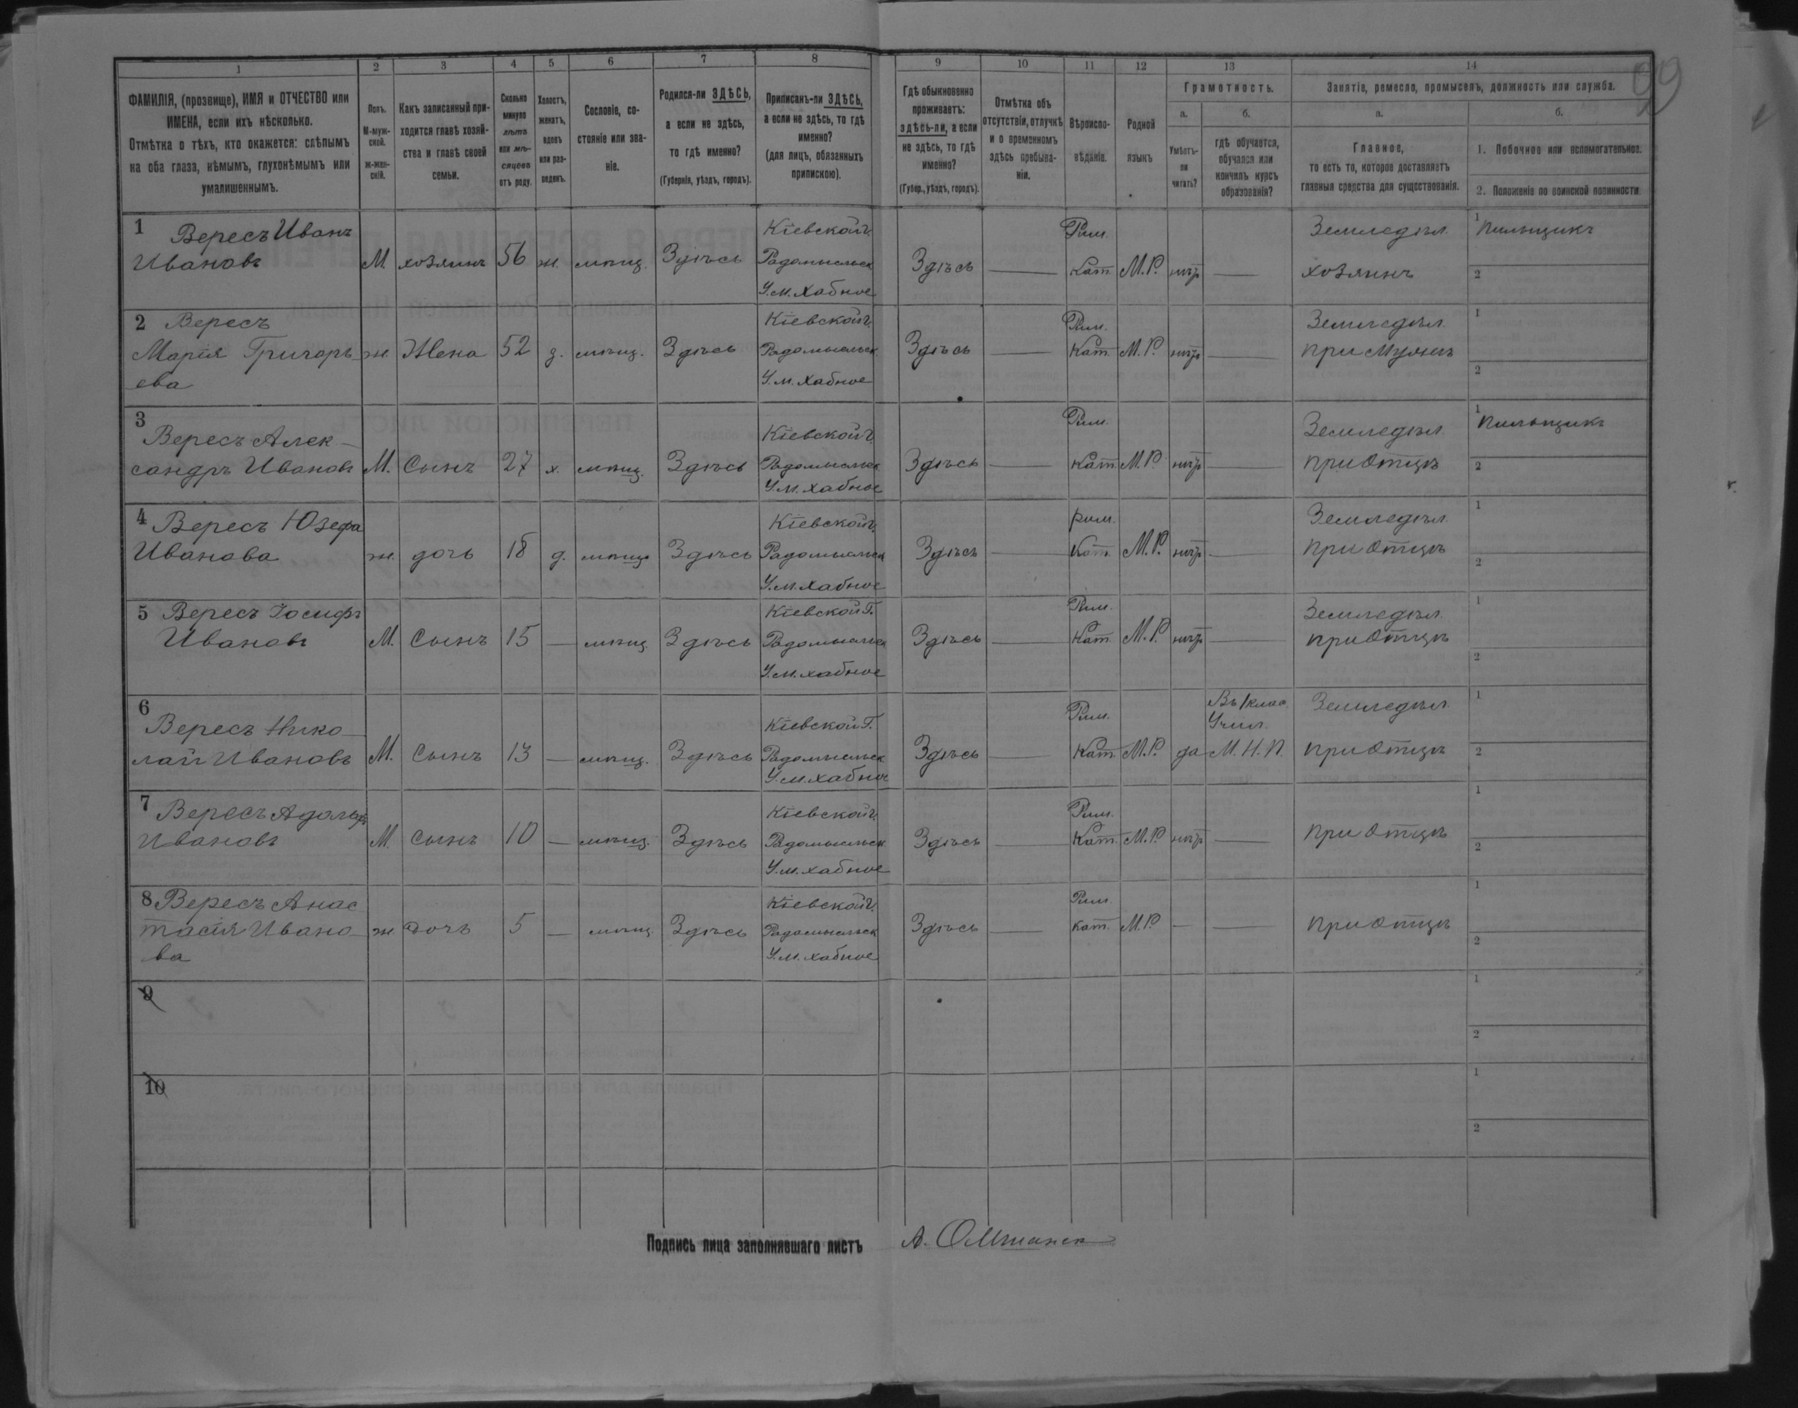 99
1 2 3 4 5 6 7 8 9 10 11 12 13 14
ФАМИЛІЯ, (прозвище), ИМЯ и ОТЧЕСТВО или ИМЕНА, если ихъ нѣсколько.
Отмѣтка о тѣхъ, кто окажется: слѣпымъ на оба глаза, нѣмымъ, глухонѣмымъ или умалишеннымъ.
Полъ. М-мужской. Ж-женскій.
Какъ записанный приходится главѣ хозяйства и главѣ своей семьи.
Сколько минуло лѣтъ или мѣсяцевъ отъ роду.
Холостъ, женатъ, вдовъ или разведенъ.
Сословіе, состояніе или званіе.
Родился-ли ЗДѢСЬ, а если не здѣсь, то гдѣ именно?
(Губернія, уѣздъ, городъ).
Приписанъ-ли ЗДѢСЬ, а если не здѣсь, то гдѣ именно?
(для лицъ, обязанныхъ припискою).
Гдѣ обыкновенно проживаетъ: здѣсь-ли, а если не здѣсь, то гдѣ именно?
(Губер., уѣздъ, городъ).
Отмѣтка объ отсутствіи, отлучкѣ и о временномъ здѣсь пребываніи.
Вѣроисповѣданіе.
Родной языкъ
Грамотность.
а. Умѣетъ-ли читать?
б. гдѣ обучается, обучался или кончилъ курсъ образованія?
Занятіе, ремесло, промыселъ, должность или служба.
а. Главное, то есть то, которое доставляетъ главныя средства для существованія.
б.
1. Побочное или вспомогательное.
2. Положеніе по воинской повинности
1 Вересъ Иванъ Ивановъ М. хозяинъ 56 ж. мѣщ. Здѣсь Кіевской г. Радомысльск У. м. Хабное Здѣсь — Рим. Кат. М. Р. нѣтъ — Земледѣл хозяинъ 1 Пильщикъ 2
2 Вересъ Марія Григорьева ж. Жена 52 з. мѣщ. Здѣсь Кіевской г. Радомысльск У. м. Хабное Здѣсь — Рим. Кат. М. Р. нѣтъ — Земледѣл при Мужѣ 1 2
3 Вересъ Александръ Ивановъ М. Сынъ 27 х. мѣщ. Здѣсь Кіевской г. Радомысльск У. м. Хабное Здѣсь — Рим. Кат. М. Р. нѣтъ — Земледѣл при Отцѣ 1 Пильщикъ 2
4 Вересъ Юзефа Иванова ж. дочь 18 д. мѣщ Здѣсь Кіевской г. Радомысльск У. м. Хабное Здѣсь — рим. Кат. М. Р. нѣтъ — Земледѣл при Отцѣ 1 2
5 Вересъ Іосифъ Ивановъ М. Сынъ 15 — мѣщ Здѣсь Кіевской Г. Радомысльск У. м. Хабное Здѣсь — Рим. Кат. М. Р. нѣтъ — Земледѣл при Отцѣ 1 2
6 Вересъ Николай Ивановъ М. Сынъ 13 — мѣщ. Здѣсь Кіевской Г. Радомысльск У. м. Хабное Здѣсь — Рим. Кат. М. Р. да Въ 1 клас. Учил. М. Н. П. Земледѣл при Отцѣ 1 2
7 Вересъ Адольфъ Ивановъ М. Сынъ 10 — мѣщ. Здѣсь Кіевской г. Радомысльск У. м. Хабное Здѣсь — Рим. Кат. М. Р. нѣтъ — при Отцѣ 1 2
8 Вересъ Анастасія Иванова ж дочь 5 — мѣщ Здѣсь Кіевской г. Радомысльск У. м. Хабное Здѣсь — Рим. Кат. М. Р. — — при Отцѣ 1 2
9 1 2
10 1 2
Подпись лица заполнявшаго листъ А.